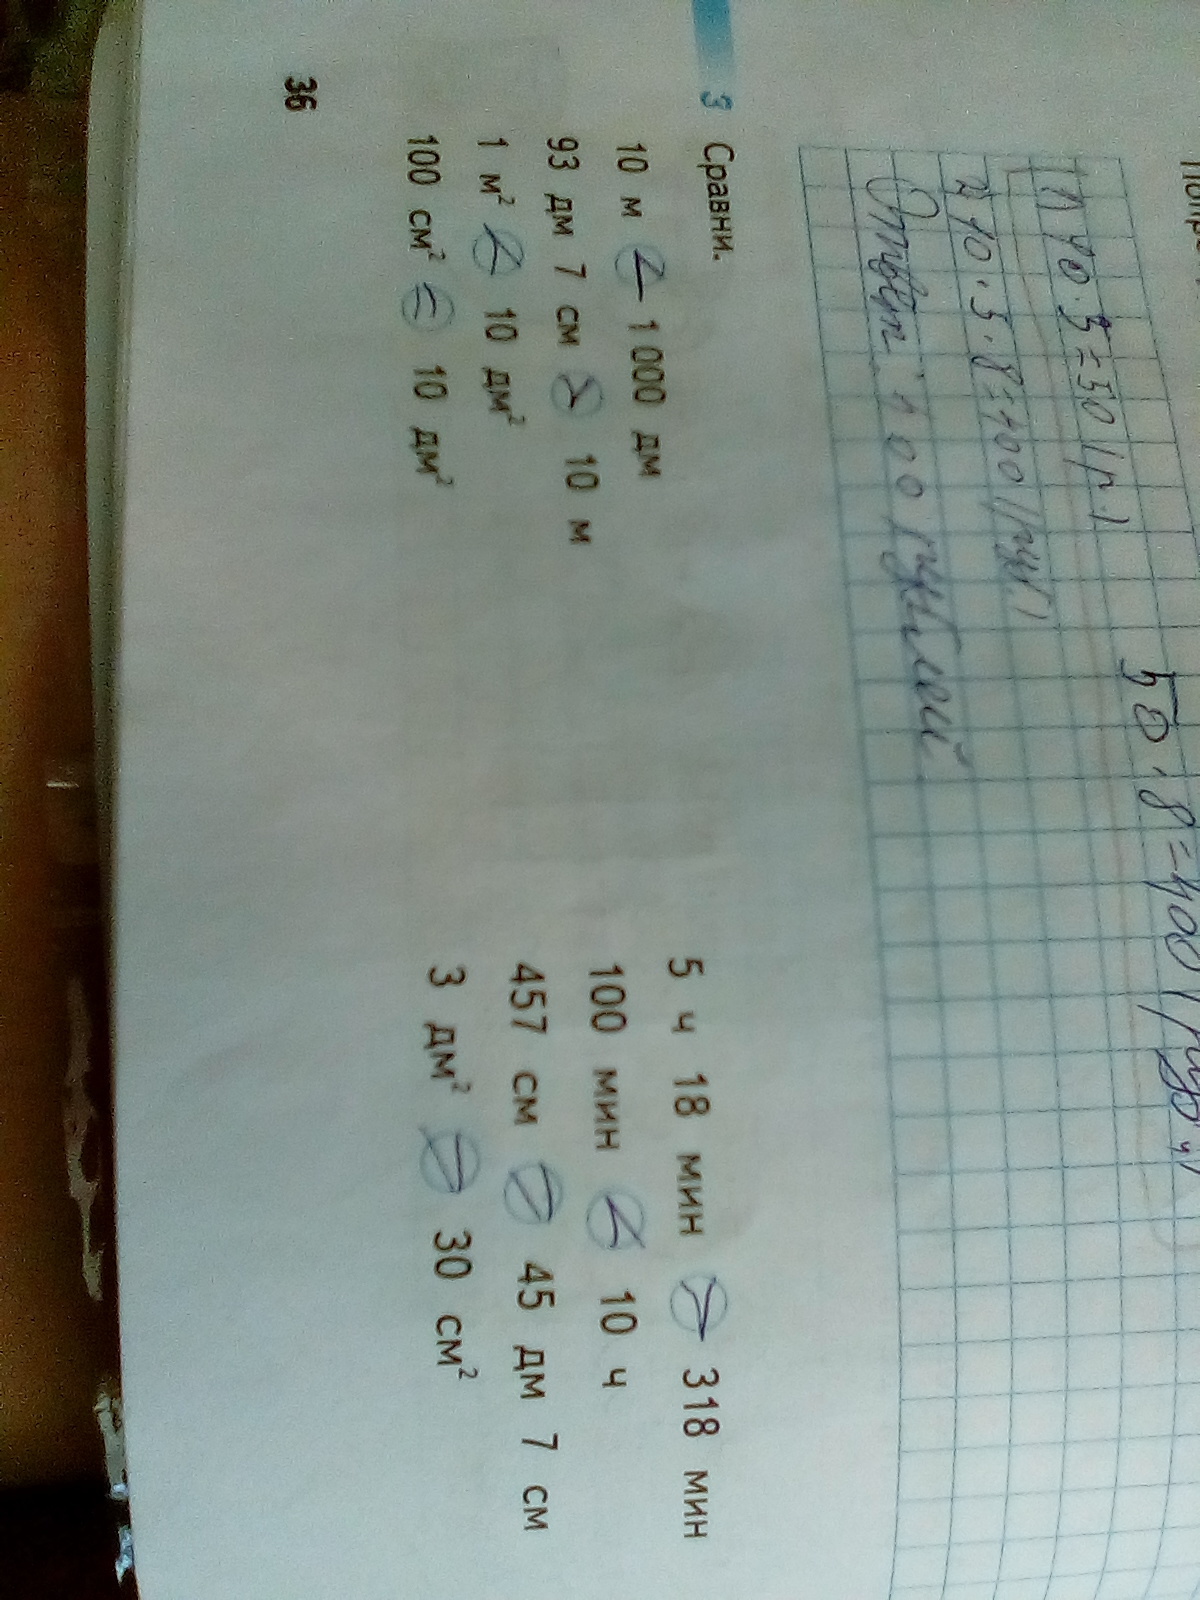 50 · 8 = 400 (руб.)
1) 10 · 5 = 50 (р.)
2) 10 · 5 · 8 = 400 (руб.)
Ответ: 400 рублей
3 Сравни.
10 м < 1 000 дм
93 дм 7 см > 10 м
1 м² < 10 дм²
100 см² = 10 дм²
5 ч 18 мин > 318 мин
100 мин < 10 ч
457 см = 45 дм 7 см
3 дм² = 30 см²
36